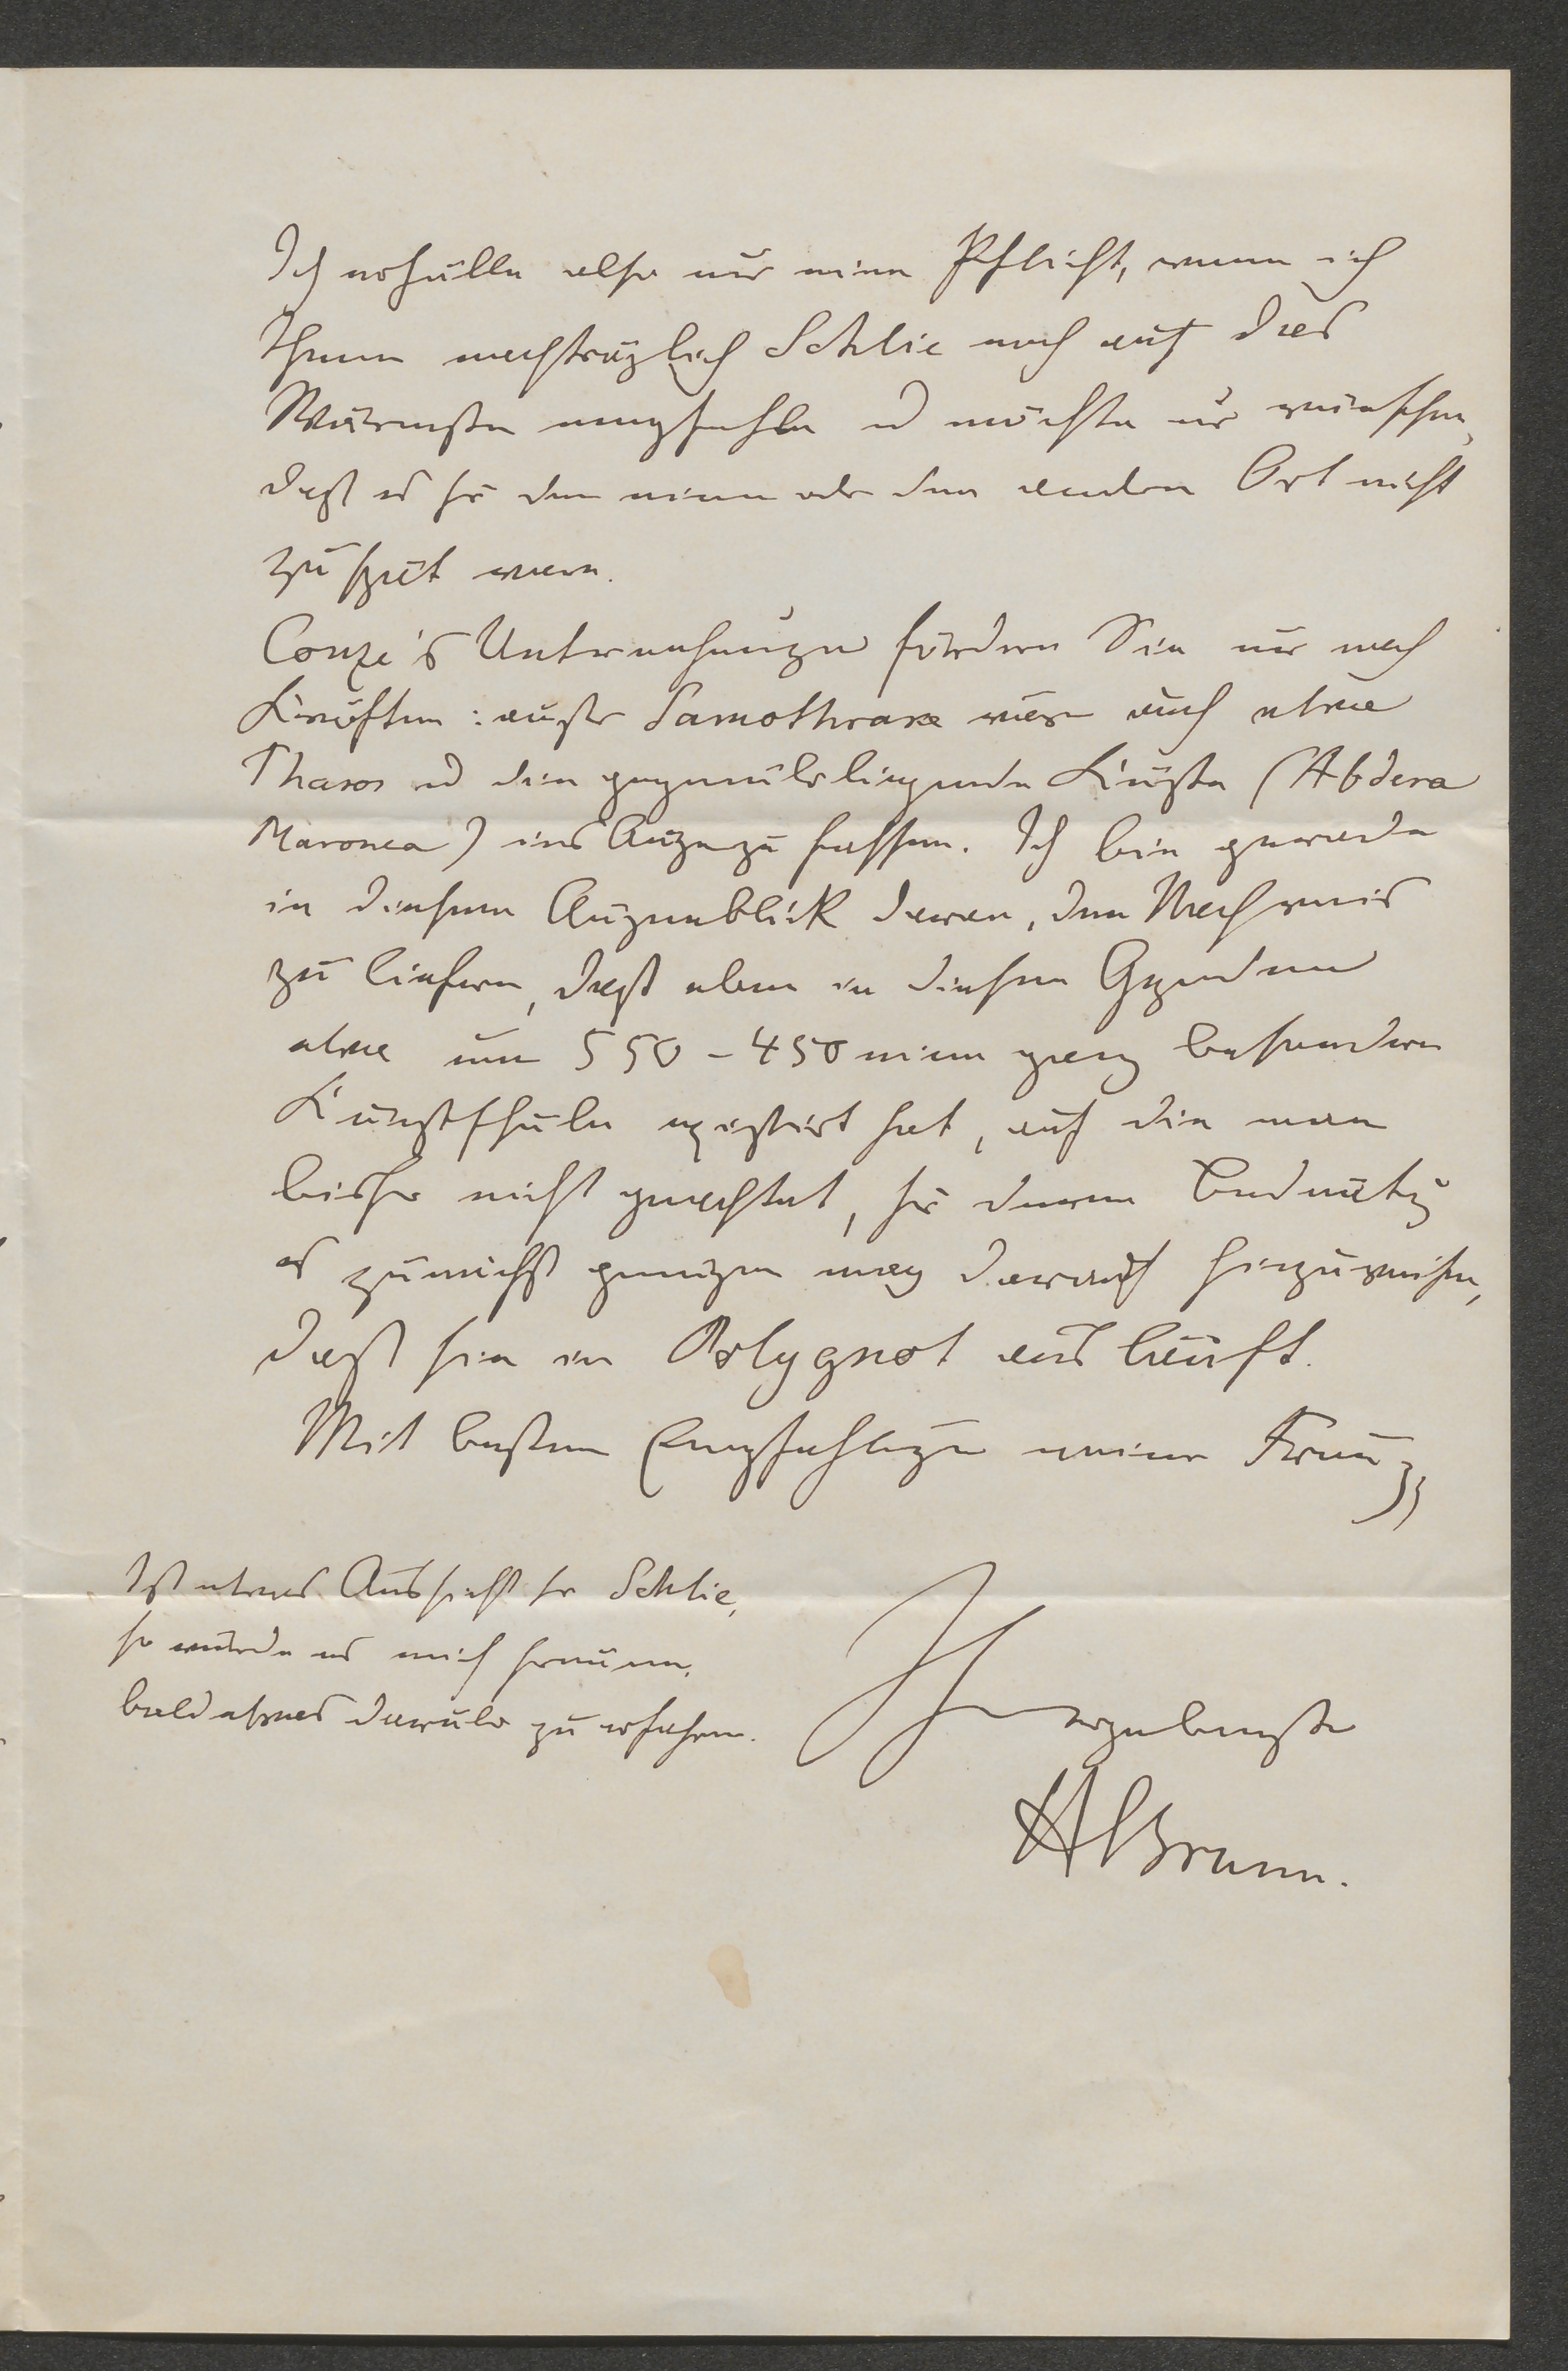 Ich erfülle also nur eine Pflicht, wenn ich
Ihnen nachträglich Schlie noch auf das
Wärmste empfehle u möchte nur wünschen,
daß es für den einen oder den andern Ort nicht
zu spät wäre.
Conze's Unternehmungen fördern Sie nur nach
Kräften: außer Samothrake wäre auch etwa
Thasos und die gegenüberliegende Küste (Abdera
Maronea) ins Auge zu fassen. Ich bin gerade
in diesem Augenblick daran, den Nachweis
zu liefern, daß eben in diesen Gegenden
etwa um 550 - 450 eine ganz besondere
Kunstschule existirt hat, auf die man
bisher nicht geachtet, für deren Bedeutg
es zunächst genügen mag darauf hinzuweisen,
daß sie in Polygnot ausläuft.
Mit besten Empfehlungen meiner Frau
Ist etwas Aussicht für Schlie,
so würde es mich freuen,
bald etwas darüber zu erfahren.
Ihr ergebenster
HBrunn.